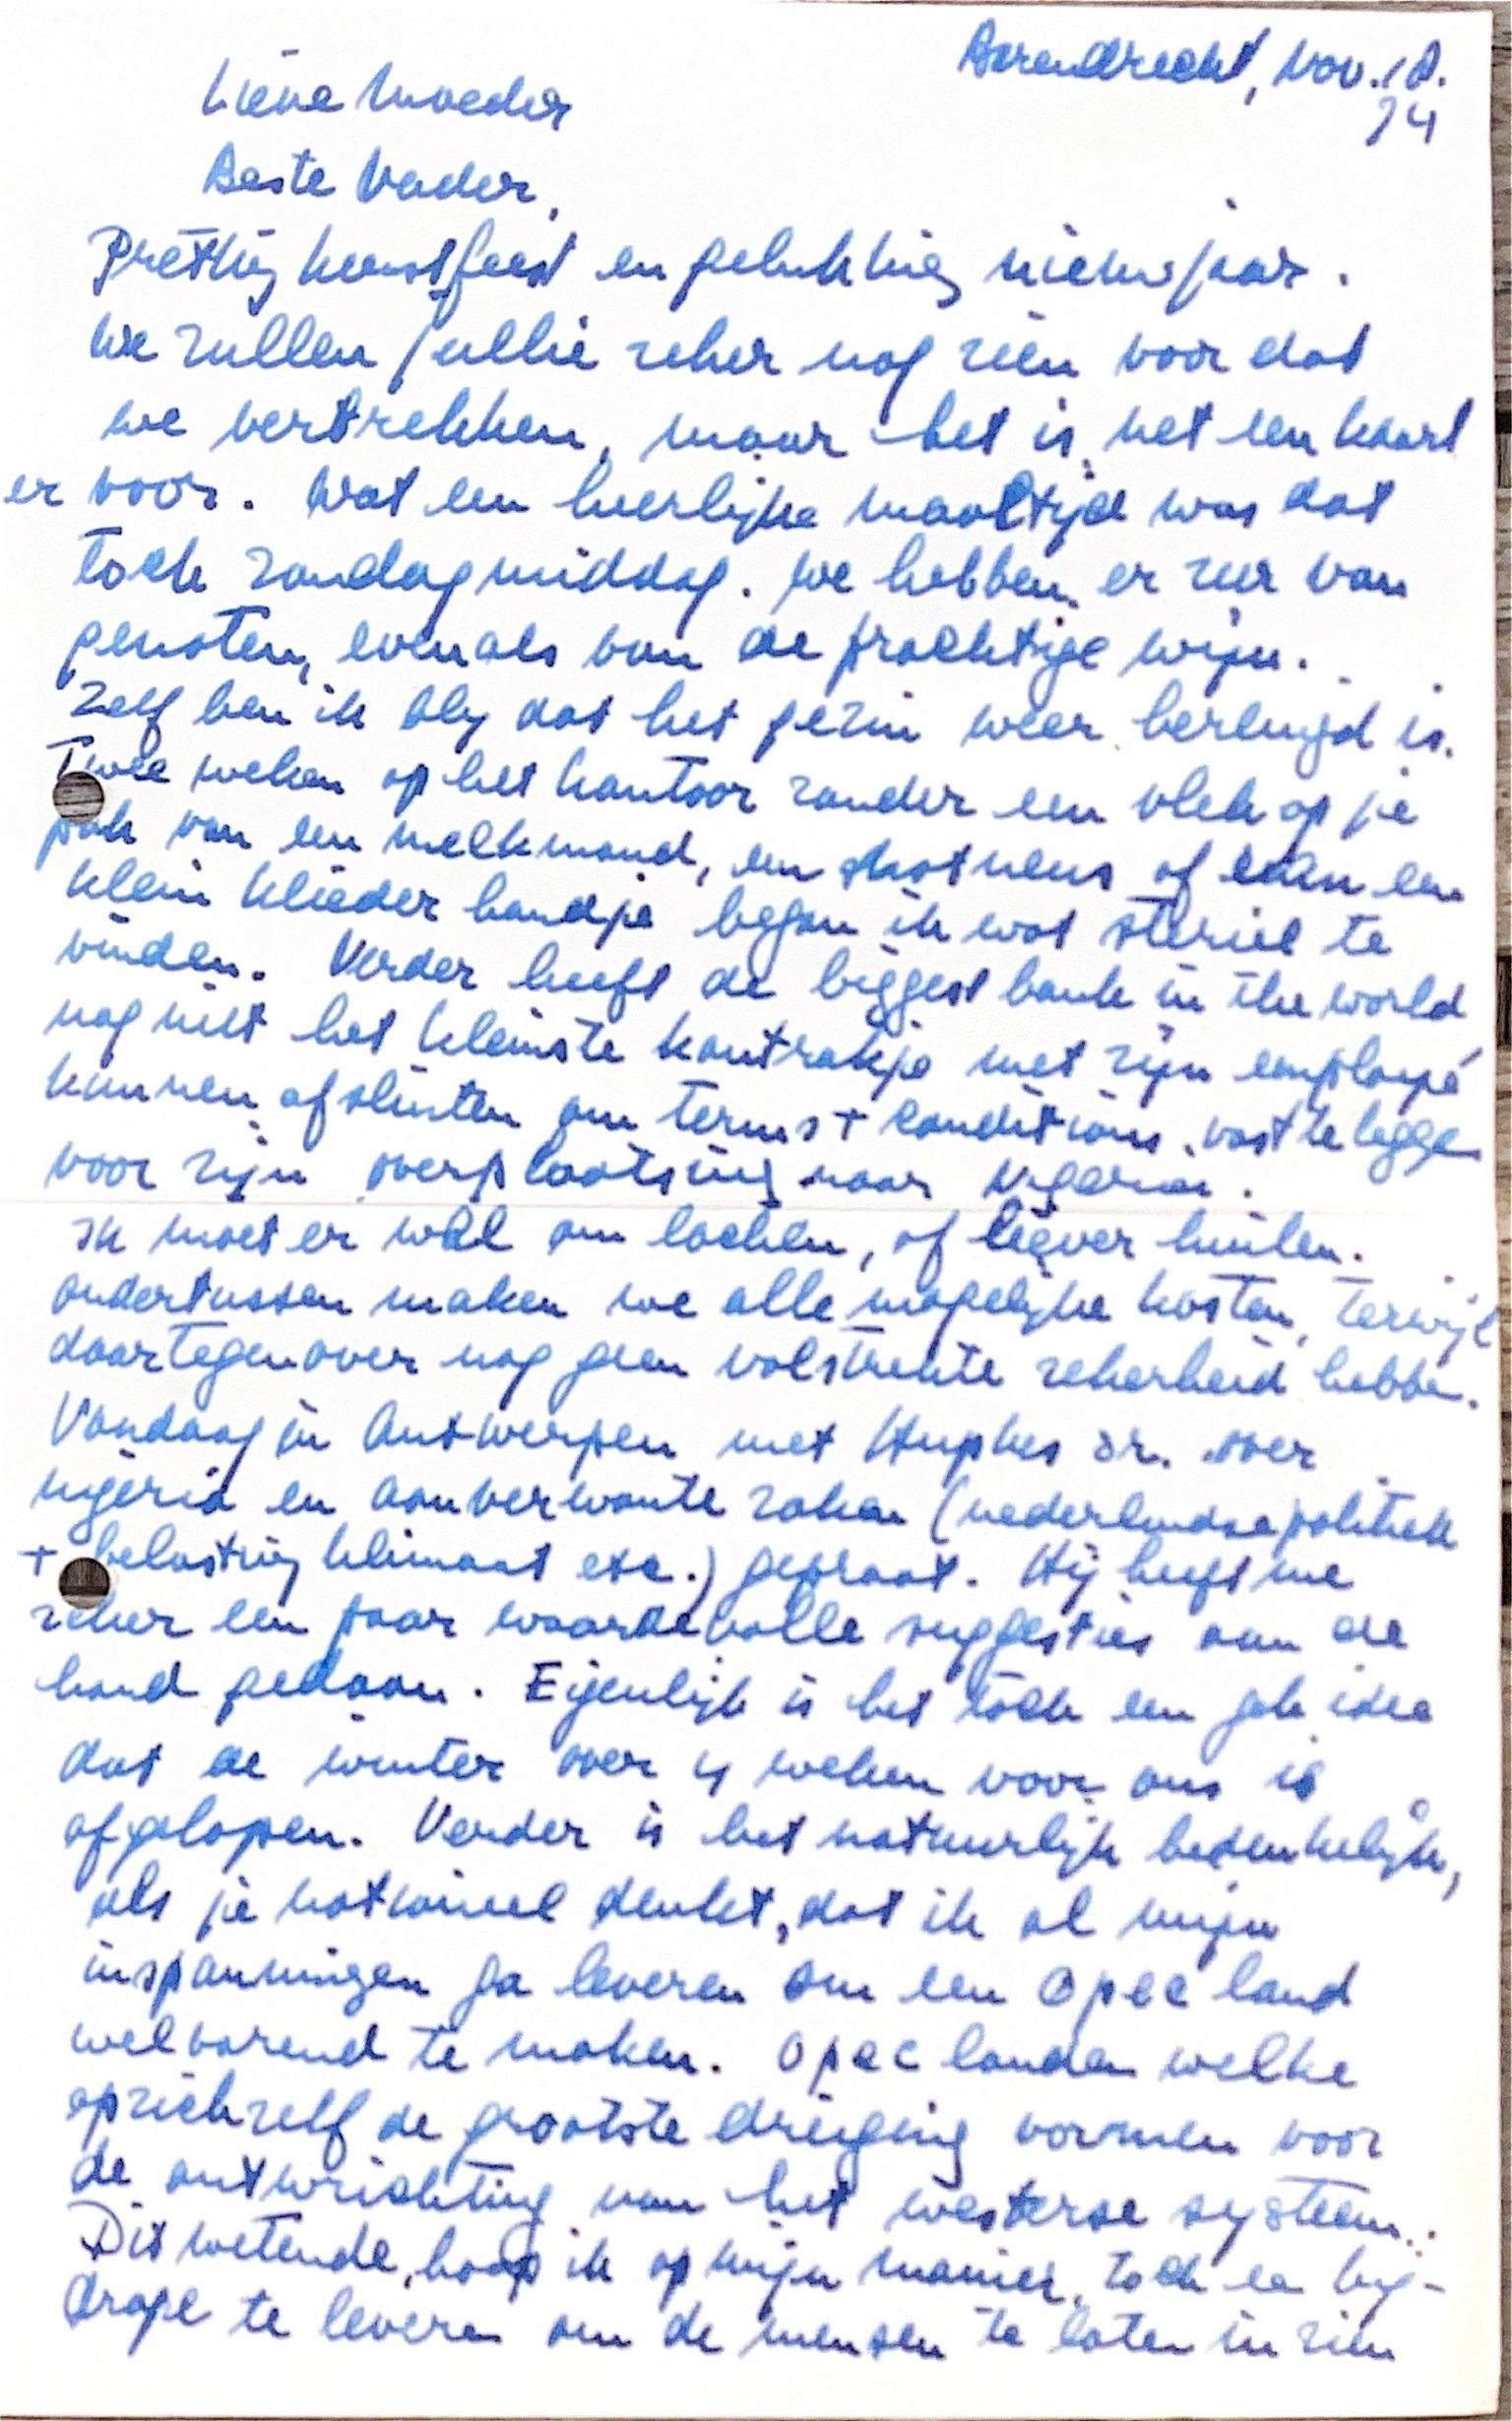 Barendrecht, Nov. 18.
74
Lieve Moeder
Beste Vader,
Prettig kerstfeest en gelukkig nieuwjaar.
We zullen jullie zeker nog zien voor dat
we vertrekken, maar het is net een kaart
er voor. Wat een heerlijke maaltijd was dat
toch zondagmiddag. We hebben er zeer van
genoten, evenals van de prachtige wijn.
Zelf ben ik blij dat het gezin weer herenigd is.
Twee weken op het kantoor zonder een vlek op je
pak van een melkmond, een snotneus of een
klein kliederhandje began ik wat steriel te
vinden. Verder heeft de biggest bank in the world
nog niet het kleinste kontrakje met zijn employé
kunnen afsluiten om terms + conditions vast te leggen
voor zijn overplaatsing naar Nigeria.
Ik moet er wel om lachen, of liever huilen.
Ondertussen maken we alle mogelijke kosten, terwijl
daartegenover nog geen volstrekte zekerheid hebben.
Vandaag in Antwerpen met Hughes sr. over
nigeria en aanverwante zaken (nederlandse politiek
+ belasting klimaat etc.) gepraat. Hij heeft me
zeker een paar waardevolle suggesties aan de
hand gedaan. Eigenlijk is het toch een gek idee
dat de winter over 4 weken voor ons is
afgelopen. Verder is het natuurlijk bedenkelijk,
als je nationaal denkt, dat ik al mijn
inspanningen ga leveren om een Opec land
welvarend te maken. Opec landen welke
opzichzelf de grootste dreiging vormen voor
de ontwrichting van het westerse systeem.
Dit wetende, hoop ik op mijn manier, toch een bij-
drage te leveren om de mensen te laten in zien